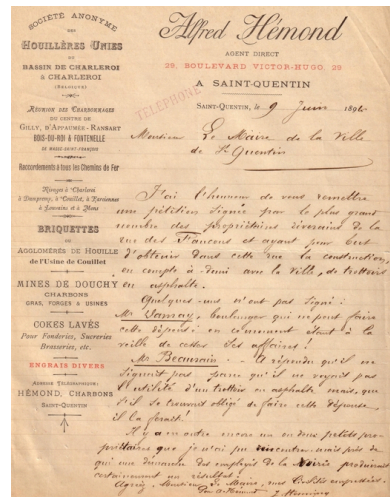 SOCIÉTÉ ANONYME
DES
HOUILLÈRES UNIES
DU
BASSIN DE CHARLEROI
À CHARLEROI
(BELGIQUE)
RÉUNION DES CHARBONNAGES
DU CENTRE DE
GILLY, D'APPAUMÉE-RANSART
BOIS-DU-ROI & FONTENELLE
Raccordements à tous les Chemins de Fer
BRIQUETTES
OU
AGGLOMÉRÉS DE HOUILLE
de l'Usine de Couillet
MINES DE DOUCHY
CHARBONS
GRAS, FORGES & USINES
COKES LAVÉS
Pour Fonderies, Sucreries
Brasseries, etc.
ENGRAIS DIVERS
ADRESSE TÉLÉGRAPHIQUE:
HÉMOND, CHARBONS
SAINT-QUENTIN
Alfred Hémond
AGENT DIRECT
29, BOULEVARD VICTOR-HUGO, 29
A SAINT-QUENTIN
TELEPHONE
SAINT-QUENTIN, le 9 Juin 189
Monsieur Le Maire de la Ville
de St Quentin
J'ai l'honneur de vous remettre
une pétition signée par le plus grand
nombre des propriétaires riverains de la
rue des Faucons et ayant pour but
d'obtenir dans cette rue la construction,
en compte à demi avec la Ville, de trottoirs
en asphalte.
Quelques-uns n'ont pas signé :
Mr boulanger qui ne peut faire
cette dépense en ce moment étant à la
veille de cesser ses affaires !
Mr Beauvais - a répondu qu'il ne
signait pas parce qu'il ne voyait pas
l'utilité d'un trottoir en asphalte mais, que
s'il se trouvait obligé de faire cette dépense,
il la ferait !
Il y a en outre encore un ou deux petits pro-
priétaires que je n'ai pu rencontrer mais près de
qui une démarche des employés de la Voirie produirait
certainement un résultat.
Agréez, Monsieur le Maire, mes civilités empressées